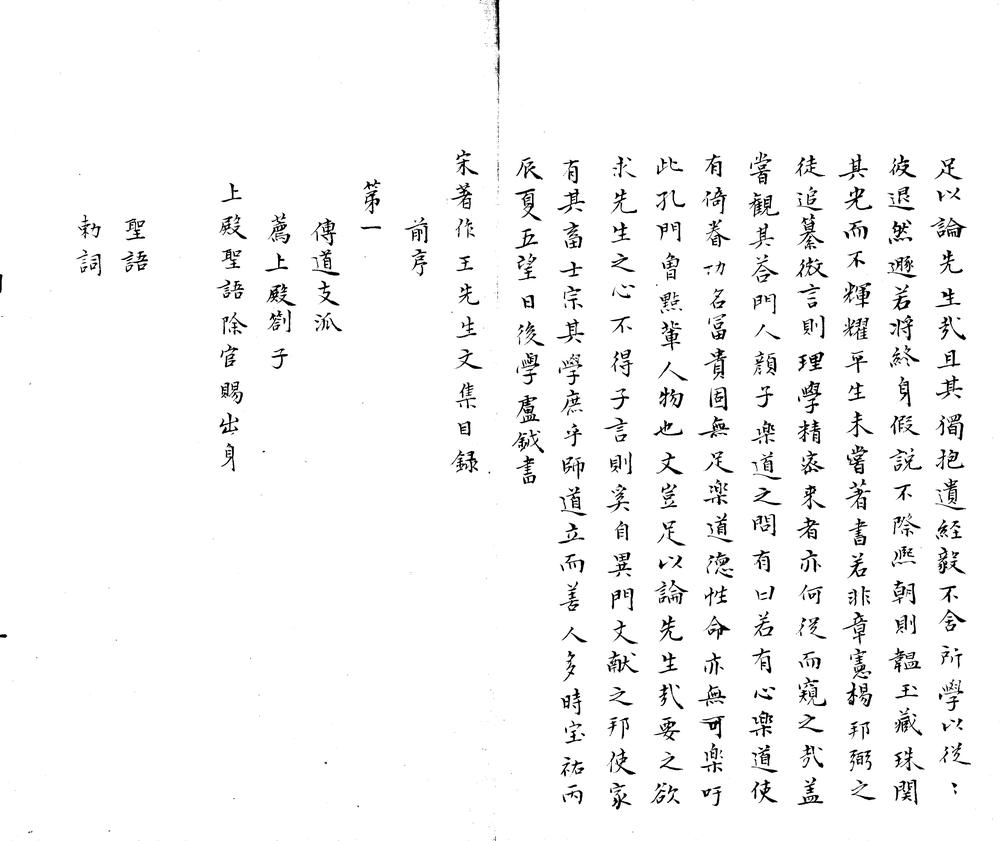 足以論先生㢤且其獨抱遺経毅不舍所學以従〻
彼退然遯若将終身假説不際熙朝則韞玉藏珠関
其光而不輝耀平生未嘗著書若非章憲楊邦弼之
徒追纂微言則理學精宻来者亦何従而窺之㢤盖
嘗觀其荅門人顔子楽道之問有曰若有心楽道使
有倚着功名冨貴固無足楽道徳性命亦無可楽吁
此孔門曾㸃輩人物也文豈足以論先生㢤要之欲
求先生之心不得子言則奚自異門文献之邦使家
有其畜士宗其學庶乎師道立而善人多時宝祐丙
辰夏五望日後學盧鉞書
宋著作王先生文集目録
前序
第一
傳道支派
薦上殿劄子
上殿聖語除官賜出身
聖語
勅詞